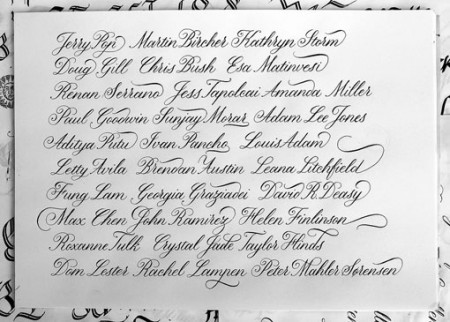 Jerry Pop Martin Bircher Kathryn Storm
Doug Gill Chris Bush Esa Matinvesi
Renan Serrano Jess Tapoleai Amanda Miller
Paul Goodwin Sunjay Morar Adam Lee Jones
Aditya Putu Ivan Pancho Louis Adam
Letty Avila Brendan Austtin Leana Litchfield
Fung Lam Georgia Graziadei David R. Deasy
Max Chen John Ramirez Helen Finlinson
Roxanne Tulk Crystal Jade Taylor Hinds
Dom Loster Rachel Lampen Peter Mahler Sørensen